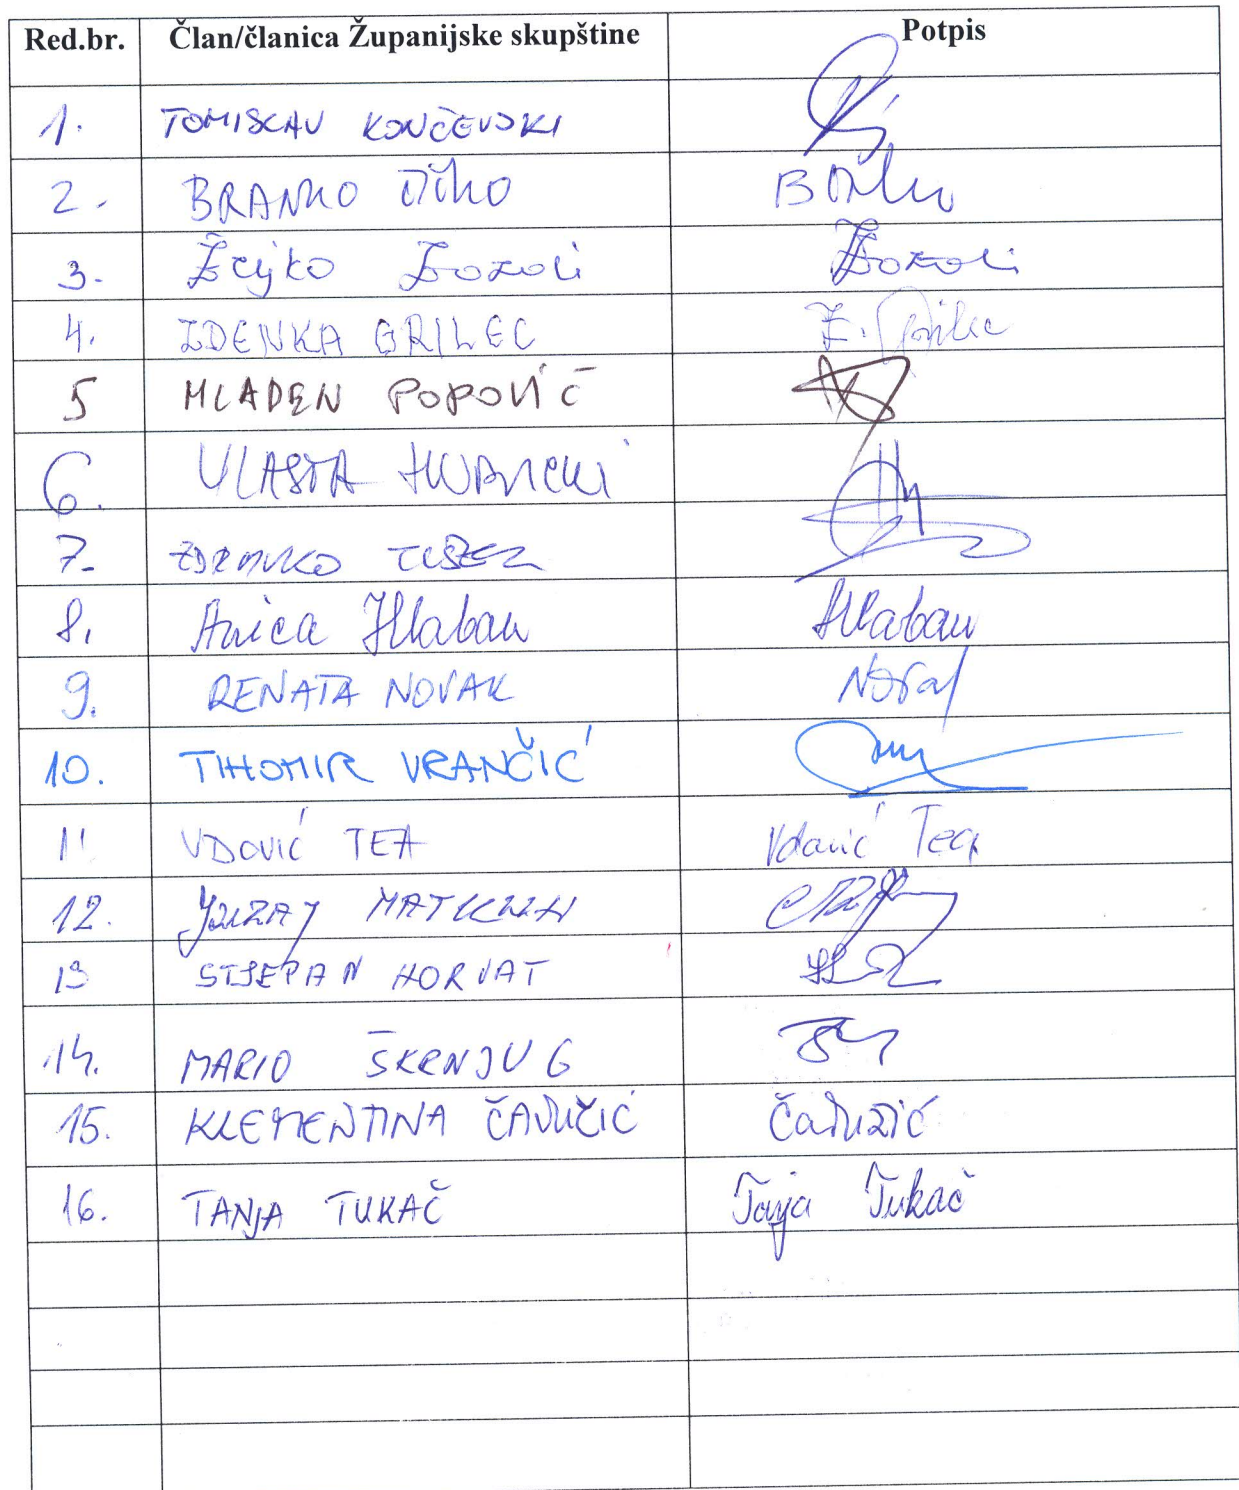 Red.br. Član/članica Županijske skupštine Potpis
1. TOMISLAV KONČEVSKI
2. BRANKO
3. Željko
4. ZDENKA GRILEC Z. Grilec
5 MLADEN POPOVIĆ
6. VLASTA
7.
8. Anica Hlaban Hlaban
9. RENATA NOVAK Novak
10. TIHOMIR VRANČIĆ
11 VDOVIĆ TEA Vdović Tea
12.
13 STJEPAN HORVAT
14. MARIO ŠKRNJUG
15. KLEMENTINA ČAVUŽIĆ Čavužić
16. TANJA TUKAČ Tanja Tukač